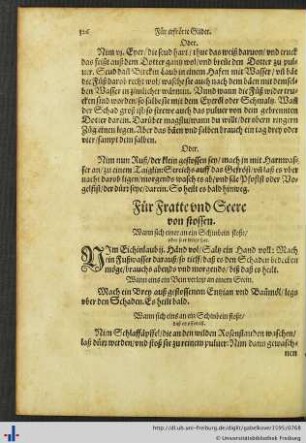 Für erfrörte Glider.
Oder.
Nim vj. Eyer/ die seud hart/ thue das weiß daruon/ vnd truck
das feißt auß dem Dotter gantz wol/ vnd breñe den Dotter zu pul-
uer. Seud dañ Bircken laub in einem Hafen mit Wasser/ vñ bäe
die Füß darob recht wol/ wasche sie auch nach dem bäen mit demsel-
ben Wasser in zimlicher wärmin. Vnnd wann die Füß wider tru-
cken sind worden/ so salbe sie mit dem Eyeröl oder Schmaltz. Wañ
der Schad groß ist/ so strewe auch das puluer von dem gebrennten
Dotter darein. Darüber magstu/ wann du wilt/ der obern ringern
Zög einen legen. Aber das bäen vnd salben brauch ein tag drey oder
vier/ sampt dem salben.
Oder.
Nim nun Ruß/ der klein gestossen sey/ mach jn mit Harnwas-
ser an/ zu einem Taiglin/ Streichs auff das Gefröst/ vñ laß es vber
nacht darob ligen/ morgends wasch es ab/ vnd säe Pfifist oder Vo-
gelfist/ der dürr seye/ darein. So heilt es bald hinweg.
Für Fratte vnd Seere
von stossen.
Wann sich einer an ein Schinbein stoßt/
NIm Eichinlaub ij. Händ vol/ Saltz ein Hand voll: Mach
ein Fußwasser darauß/ so tieff/ daß es den Schaden bedecken
möge/ brauchs abends vnd morgends/ biß daß es heilt.
Wann eins ein Bein verletzt an einem Stein.
Mach ein Brey auß gestossenem Entzian vnd Baumöl/ legs
vber den Schaden. Es heilt bald.
Wann sich eins an ein Schinbein stoßt/
daß es schwirt.
Nim Schlaffäpffel/ die an den wilden Rosenstauden wachsen/
laß dürr werden/ vnd stoß sie zu reinem puluer: Nim dann gewasch-
nen
http://dl.ub.uni-freiburg.de/diglit/gabelkover1595/0768
© Universitätsbibliothek Freiburg